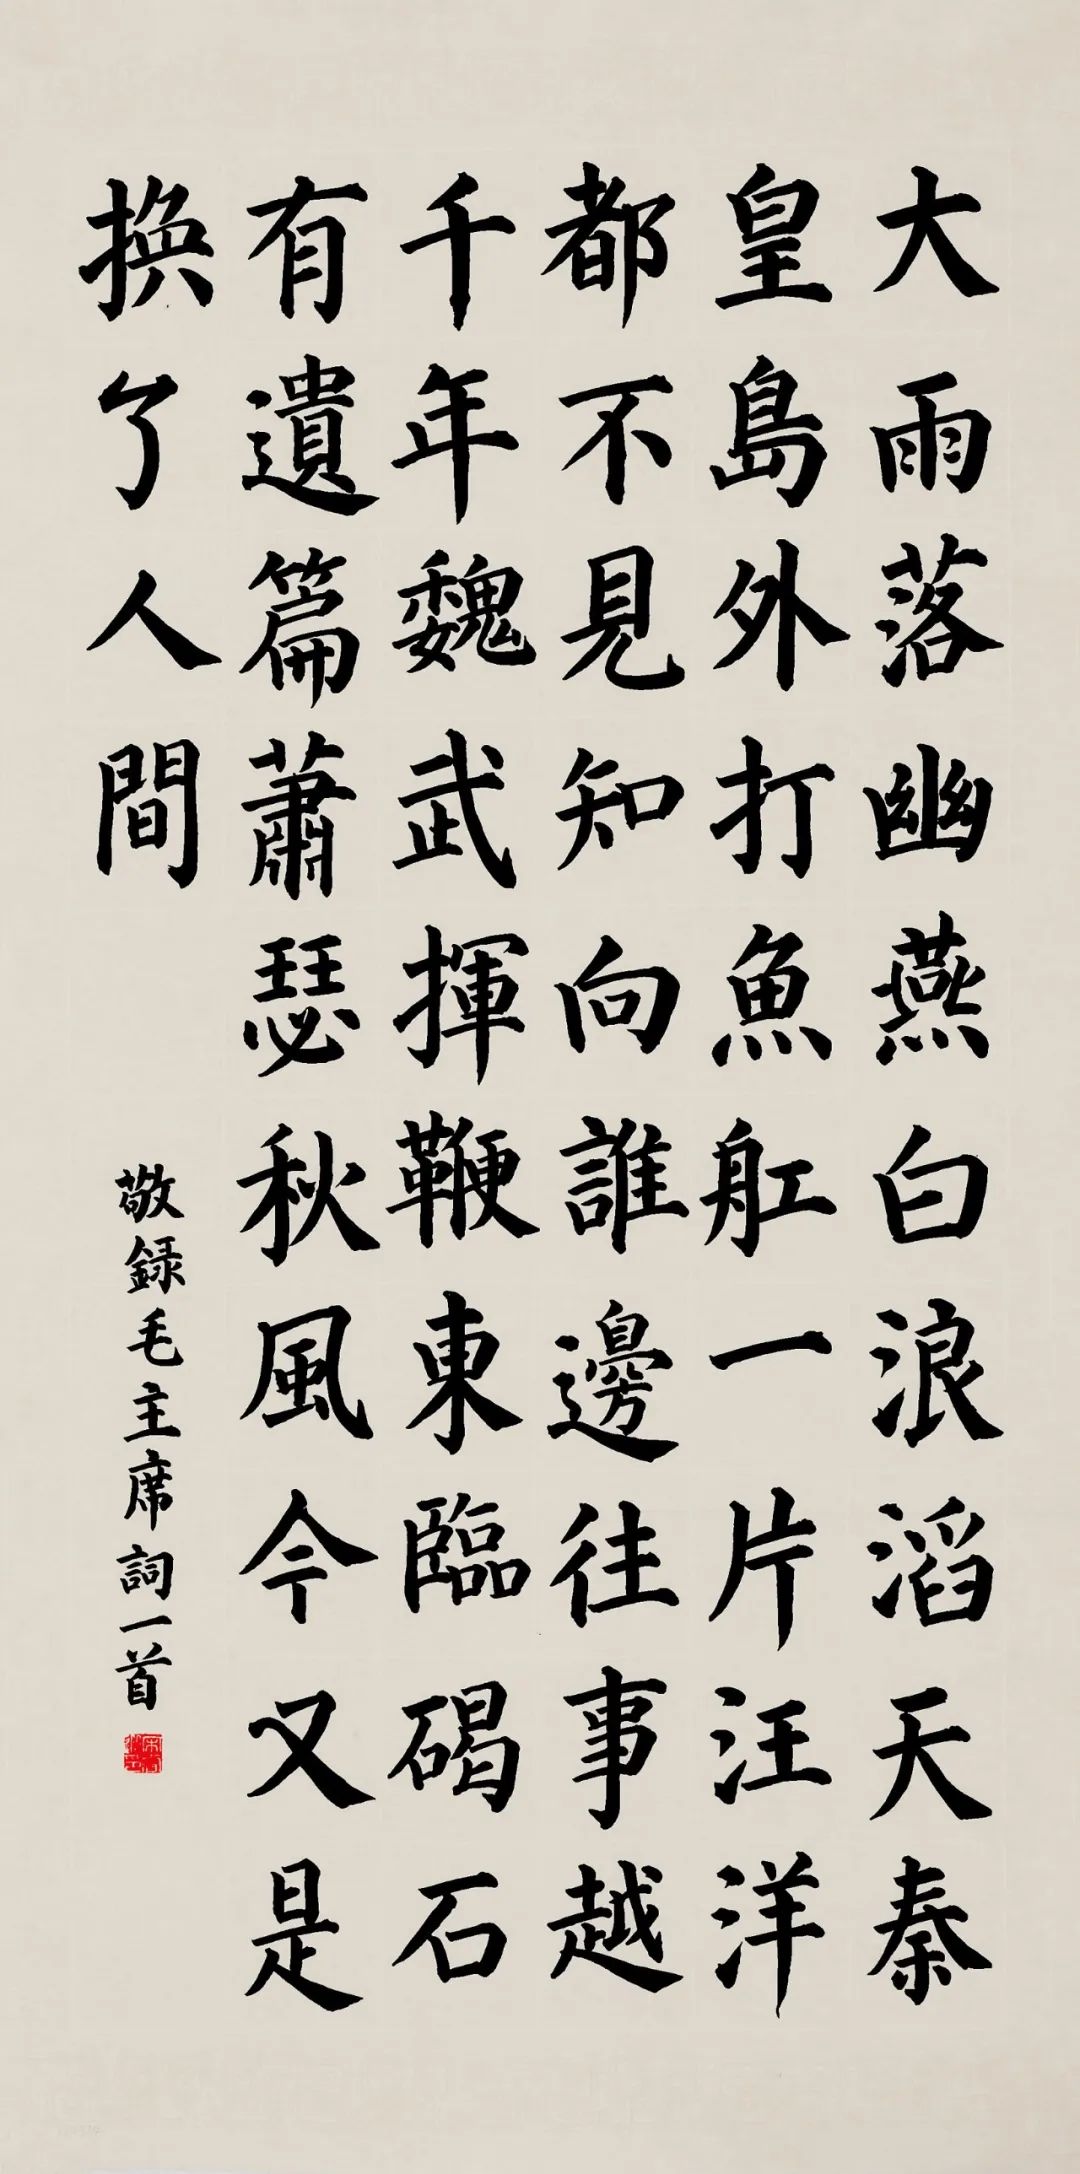 大雨落幽燕白浪滔天秦
皇島外打魚舡一片汪洋
都不見知向誰邊往事越
千年魏武揮鞭東臨碣石
有遺篇蕭瑟秋風今又是
換了人間
敬録毛主席詞一首